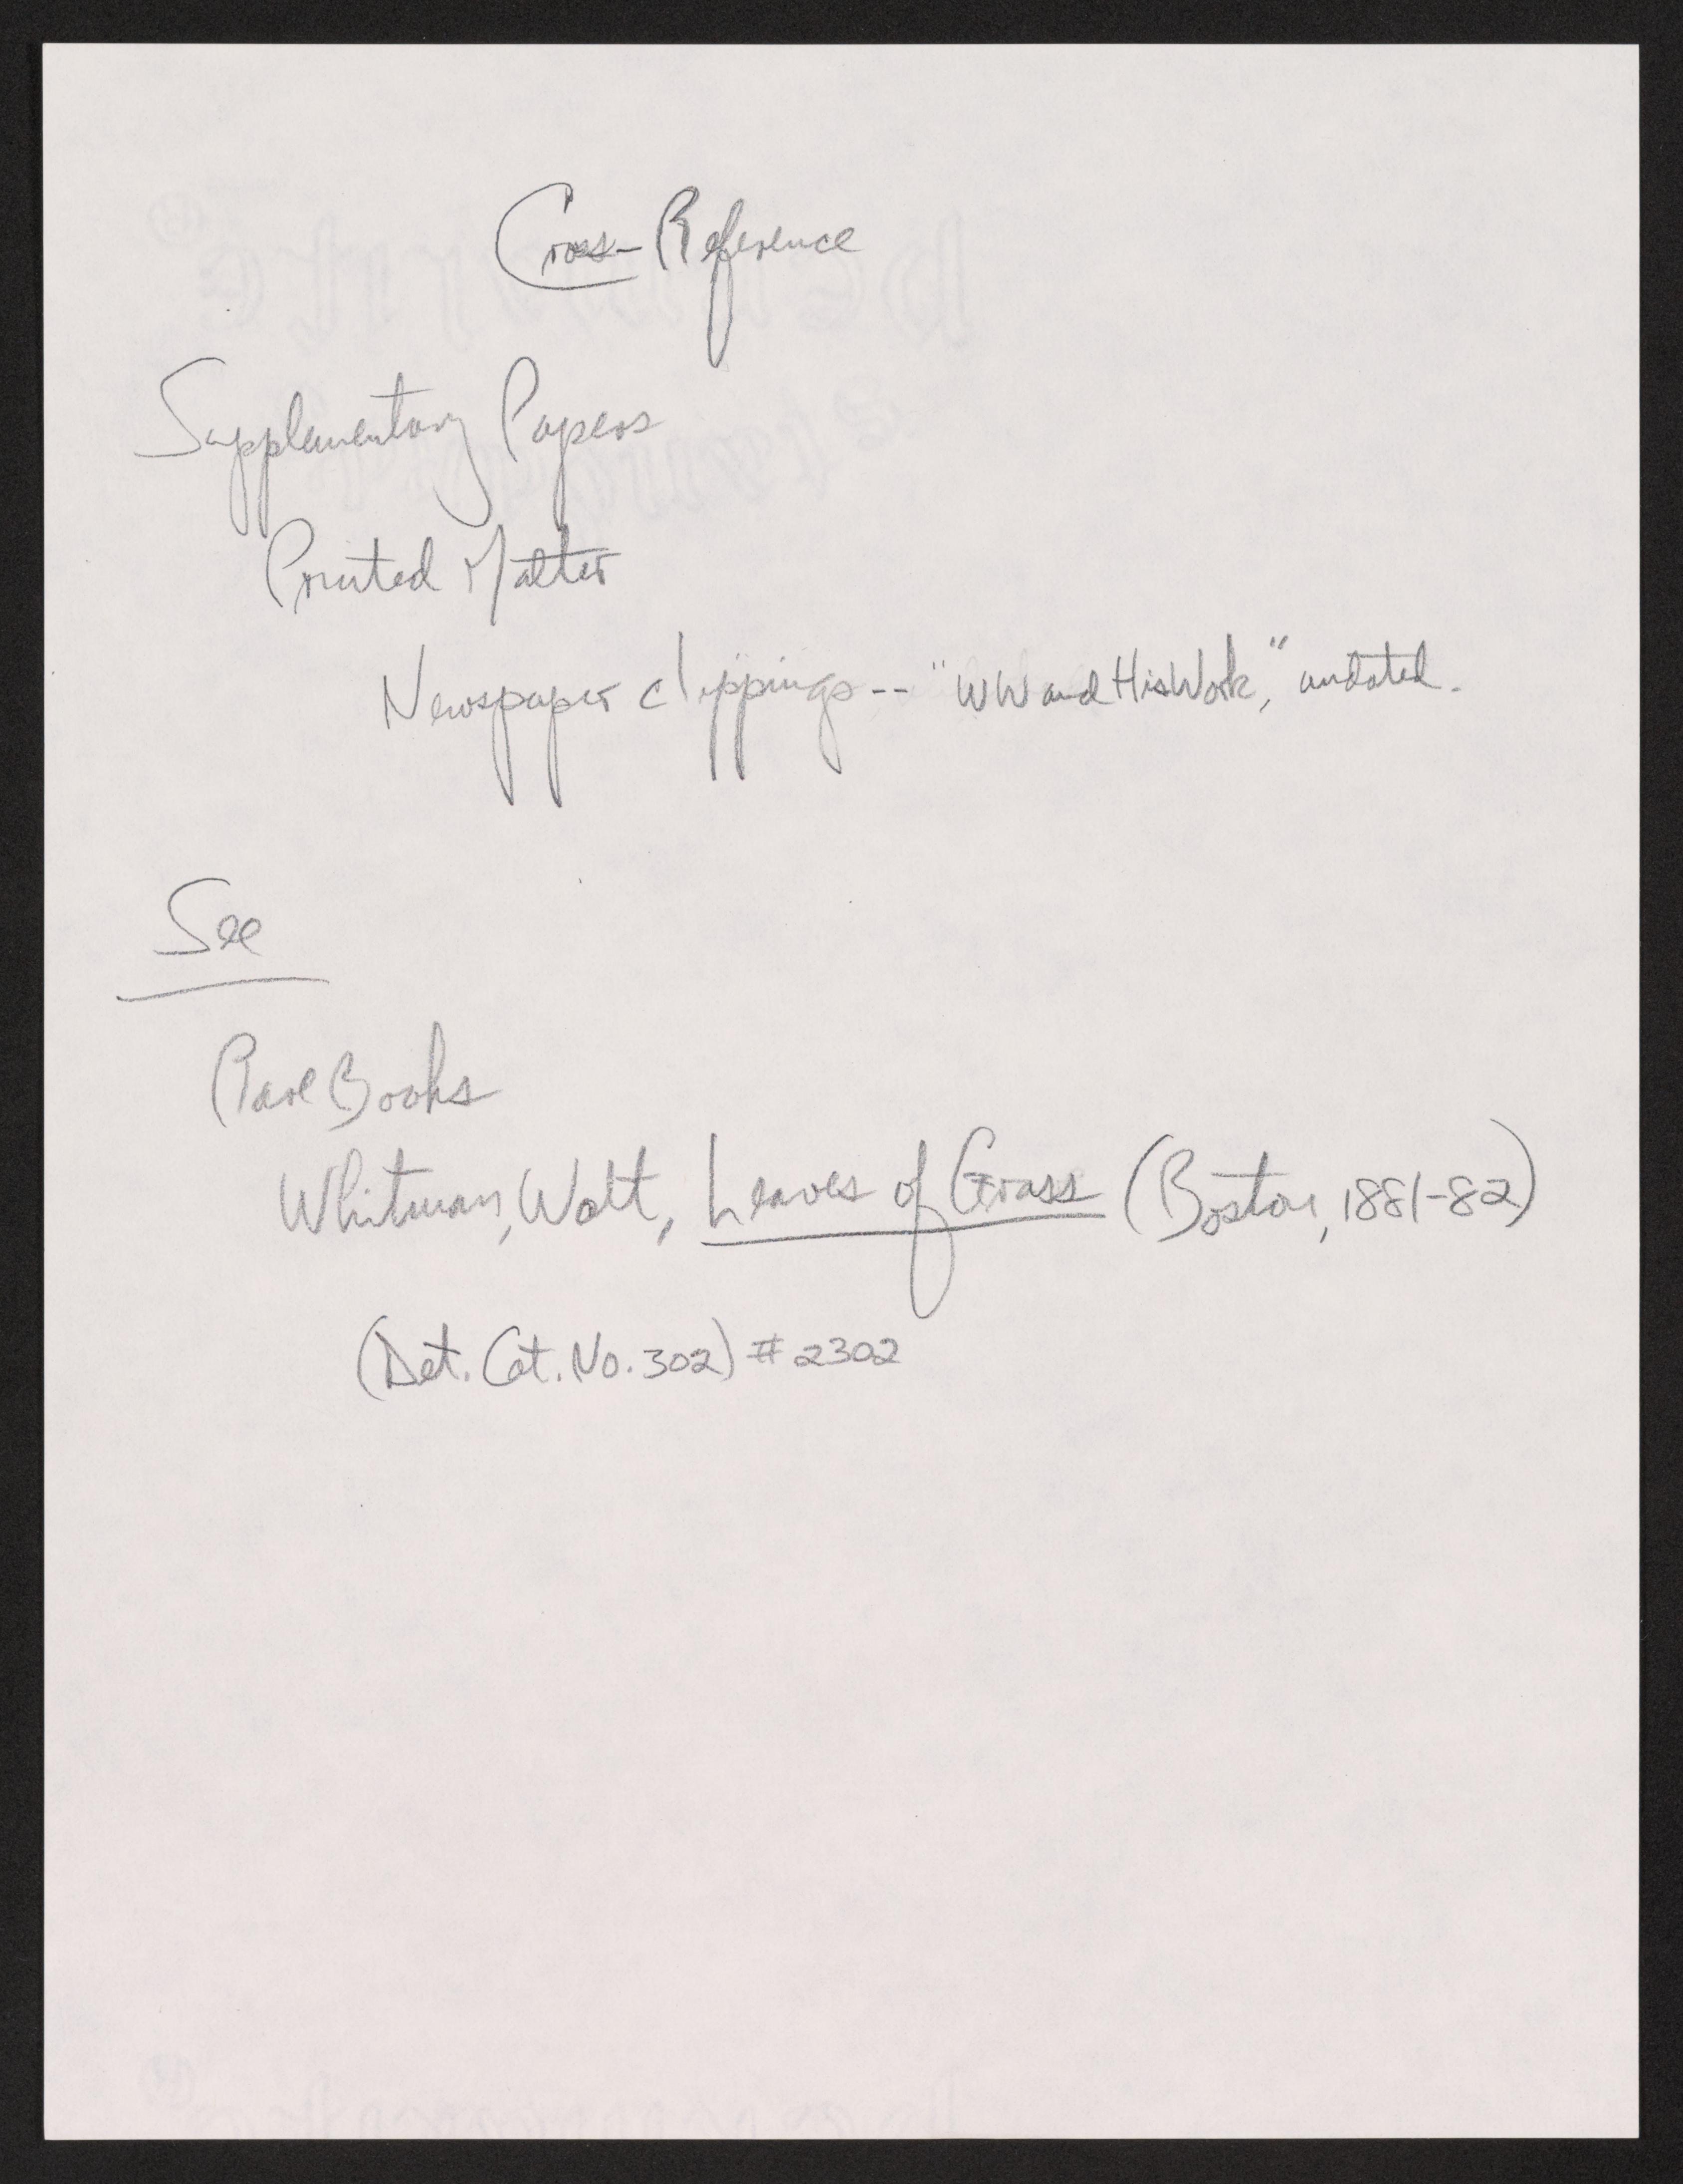 Cross-Reference
Supplementary Papers
Printed Matter
Newspaper clippings -- "WW and His Work," undated.
See
Rare Books
Whitman, Walt, Leaves of Grass (Boston, 1881-82)
(Det. Cat. No. 302) # 2302